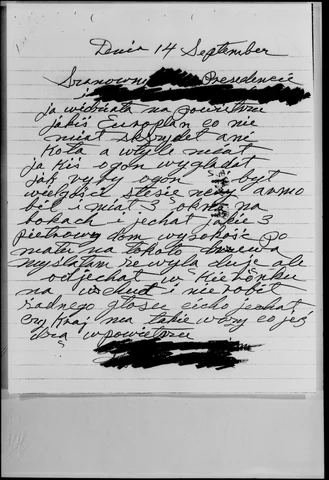 Dnia 14 September
Szanowny Presedencie
ja widziała na powietrzu
jakiś European co nie
miał skrzydeł ani
koła a wtyle miał
ja kiś ogon wyglądał
jak ryby ogon był
wielgości armo
bil i miał 3 okna na
bokach i jechał jakie 3
pietrowy dom wysokość Po
mału na około drzewa
myslałam ze ale
odjechał w Kierónku
na wschud i nie robił
zadnego głosu cicho jechał
czy Kraj ma takie wozy co jeź
dzą w powietrzu